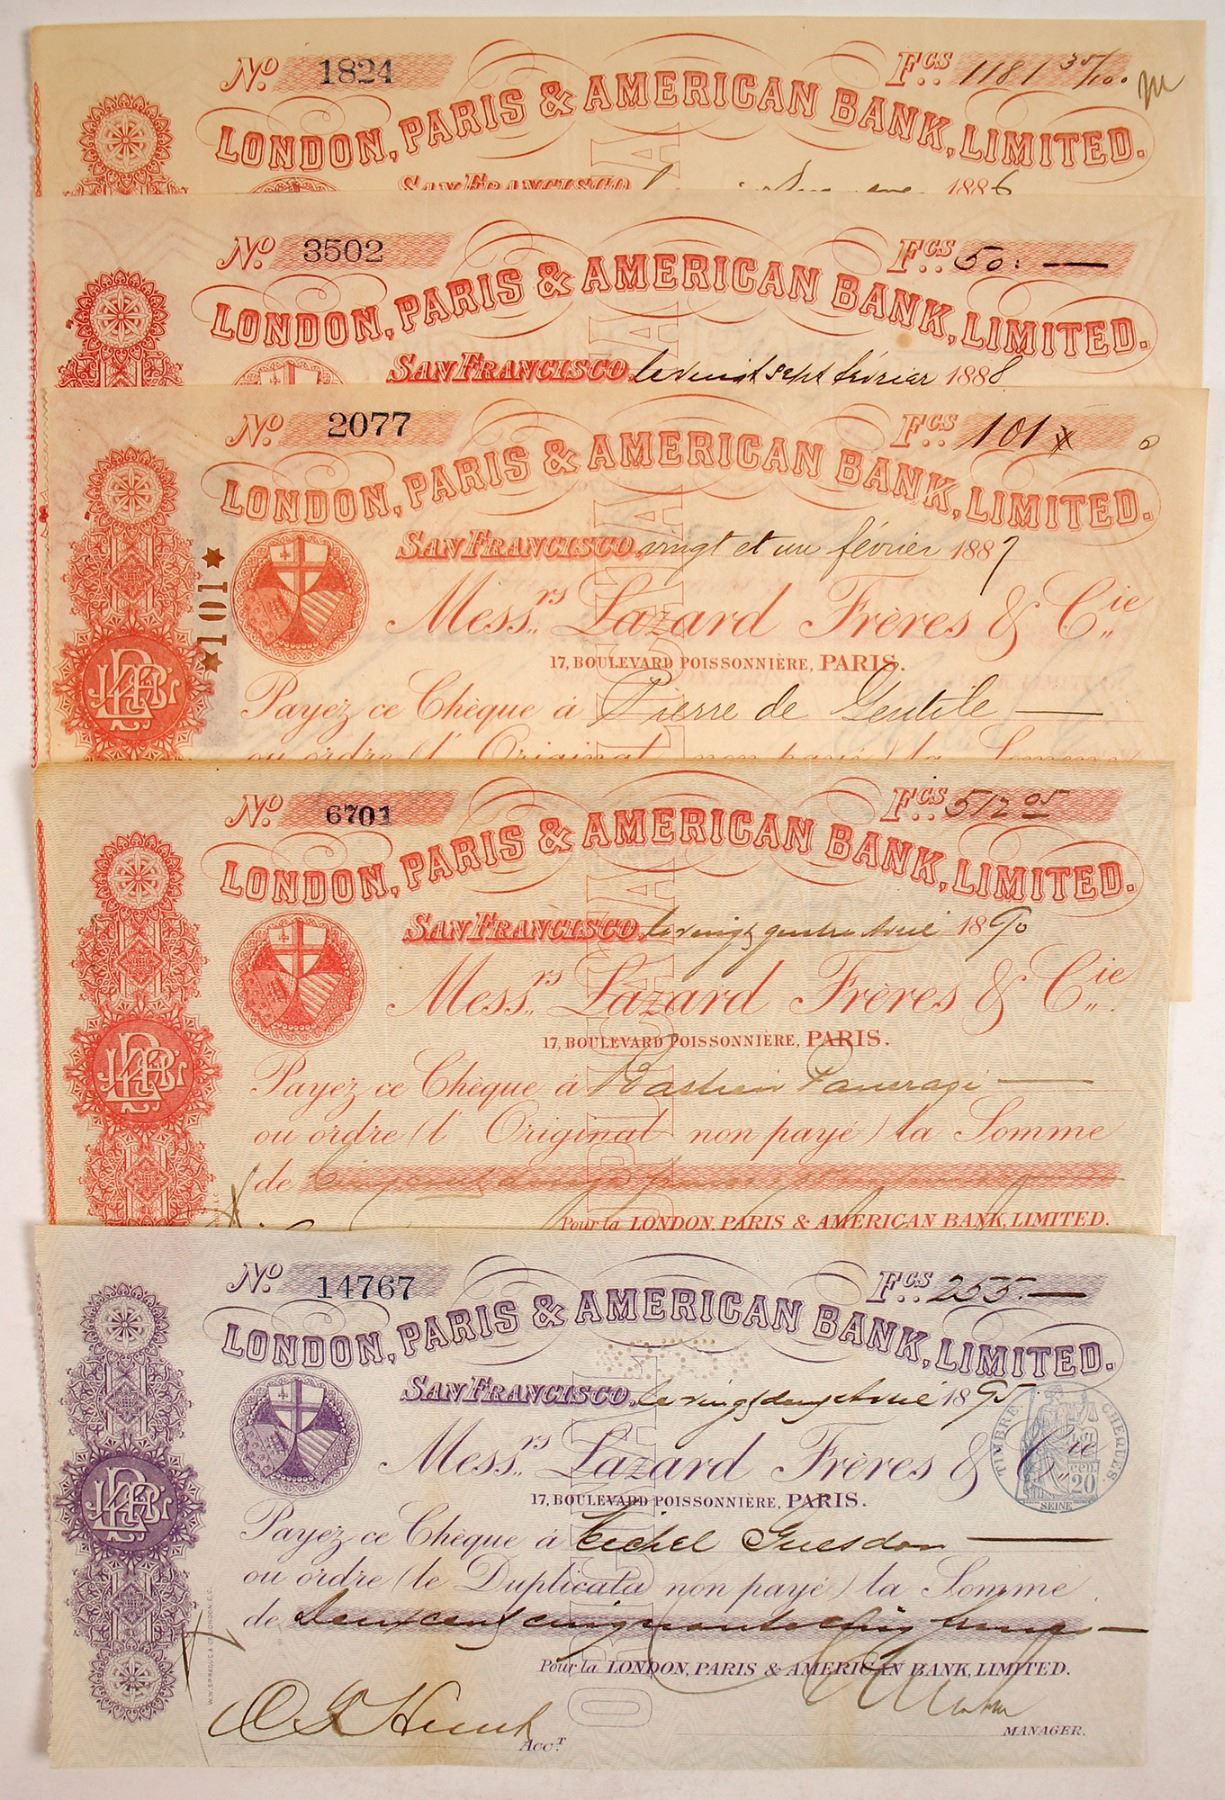 No. 1824 Fcs. 1181 35/100
LONDON, PARIS & AMERICAN BANK, LIMITED.
SAN FRANCISCO 1886
No. 3502 Fcs. 50: —
LONDON, PARIS & AMERICAN BANK, LIMITED.
SAN FRANCISCO, le vingt sept février 1888
No. 2077 Fcs. 101
LONDON, PARIS & AMERICAN BANK, LIMITED.
SAN FRANCISCO, vingt et un février 1887
Messrs. Lazard Frères & Cie.
★101★
17, BOULEVARD POISSONNIÈRE, PARIS.
Payez ce Chèque à Pierre de Gentile —
ou ordre (l' Original non payé) la Somme
No. 6701 Fcs. 512 05
LONDON, PARIS & AMERICAN BANK, LIMITED.
SAN FRANCISCO, le vingt quatre Avril 1890
Messrs. Lazard Frères & Cie.
17, BOULEVARD POISSONNIÈRE, PARIS.
Payez ce Chèque à Bastien —
ou ordre (l' Original non payé) la Somme
de Cinq cent douze francs
Pour la LONDON, PARIS & AMERICAN BANK, LIMITED.
No. 14767 Fcs. 255. —
LONDON, PARIS & AMERICAN BANK, LIMITED.
SAN FRANCISCO, le vingt deux Avril 1895
Messrs. Lazard Frères & Cie
TIMBRE CHEQUES. 20 SEINE
17, BOULEVARD POISSONNIÈRE, PARIS.
Payez ce Chèque à Michel Guesdon —
ou ordre (le Duplicata non payé) la Somme
de Deux cent cinquante cinq francs —
ORIGINAL
Pour la LONDON, PARIS & AMERICAN BANK, LIMITED.
Acct. MANAGER.